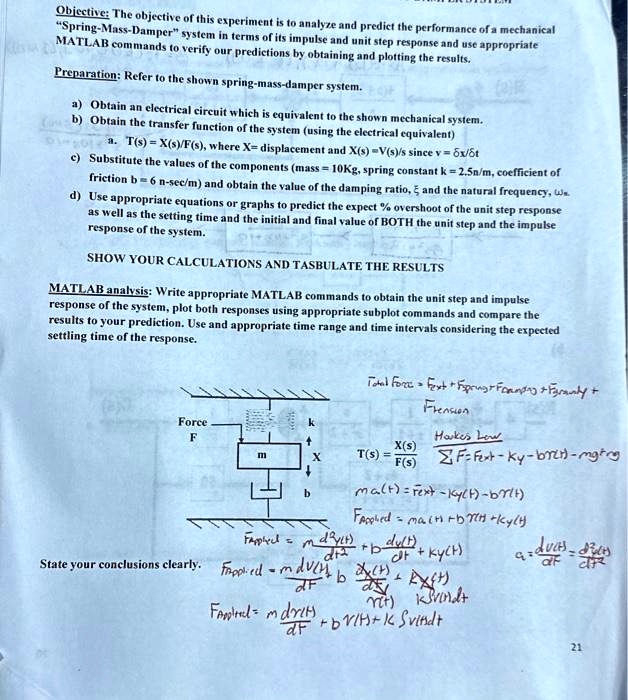 Objective: The objective of this experiment is to analyze and predict the performance of a mechanical
"Spring-Mass-Damper" system in terms of its impulse and unit step response and use appropriate
MATLAB commands to verify our predictions by obtaining and plotting the results.
Preparation: Refer to the shown spring-mass-damper system.
a) Obtain an electrical circuit which is equivalent to the shown mechanical system.
b) Obtain the transfer function of the system (using the electrical equivalent)
a. T(s) = X(s)/F(s), where X= displacement and X(s) =V(s)/s since v = δx/δt
c) Substitute the values of the components (mass = 10Kg, spring constant k = 2.5n/m, coefficient of
friction b = 6 n-sec/m) and obtain the value of the damping ratio, ξ and the natural frequency, ωn.
d) Use appropriate equations or graphs to predict the expect % overshoot of the unit step response
as well as the setting time and the initial and final value of BOTH the unit step and the impulse
response of the system.
SHOW YOUR CALCULATIONS AND TASBULATE THE RESULTS
MATLAB analysis: Write appropriate MATLAB commands to obtain the unit step and impulse
response of the system, plot both responses using appropriate subplot commands and compare the
results to your prediction. Use and appropriate time range and time intervals considering the expected
settling time of the response.
Total Force = Fext + Fspring + Fdamping + Fgravity +
Ftension
Force
F
k
m
X
b
T(s) = X(s)/F(s)
Hookes Law
ΣF = Fext - ky - br(t) - mg + mg
ma(t) = Fext - ky(t) - br(t)
FApplied = ma(t) + br(t) + ky(t)
FApplied = m d²y(t)/dt² + b dy(t)/dt + ky(t)
a = dv(t)/dt = d²y(t)/dt²
State your conclusions clearly.
FApplied = m dv(t)/dt + b dy(t)/dt + ky(t)
r(t) k∫v(t)dt
FApplied = m dr(t)/dt + b v(t) + k ∫v(t)dt
21